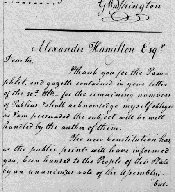 G. Washington
Alexander Hamilton Esqr.
Dear Sir,
Thank you for the Pam-
phlet, and gazette contained in your letter
of the 30th Ulto. For the remaining numbers
of Publius I shall acknowledge myself obliged
as I am persuaded the subject will be well
handled by the author of them.
The new Constitution has
as the public prints will have informed
you, been handed to the People of this State
by an unanimous vote of the Assembly;
but